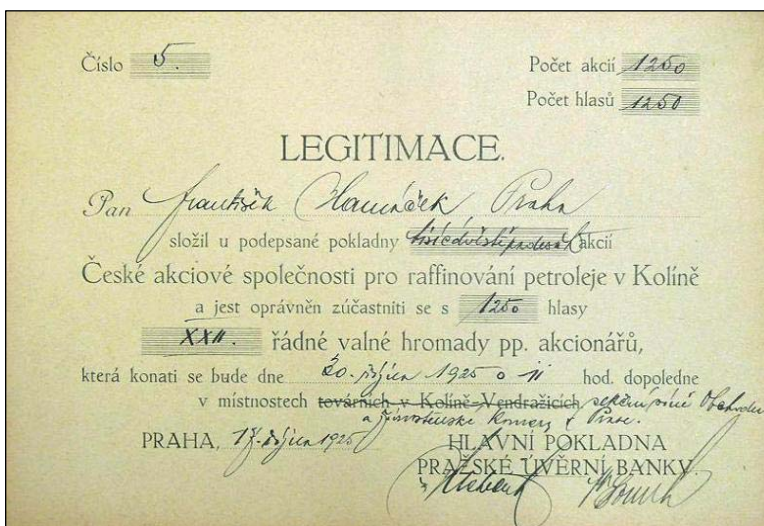 Číslo 5.
Počet akcií 1250
Počet hlasů 1250
LEGITIMACE.
Pan František Hamáček Praha
složil u podepsané pokladny tisícdvěstěpadesát akcií
České akciové společnosti pro raffinování petroleje v Kolíně
a jest oprávněn zúčastniti se s 1250 hlasy
XXII. řádné valné hromady pp. akcionářů,
která konati se bude dne 30. října 1925 o 11 hod. dopoledne
v místnostech továrních v Kolíně-Vendražicích Obchodní
a Živnostenské komory v Praze.
PRAHA, 17. října 1925
HLAVNÍ POKLADNA
PRAŽSKÉ ÚVĚRNÍ BANKY.